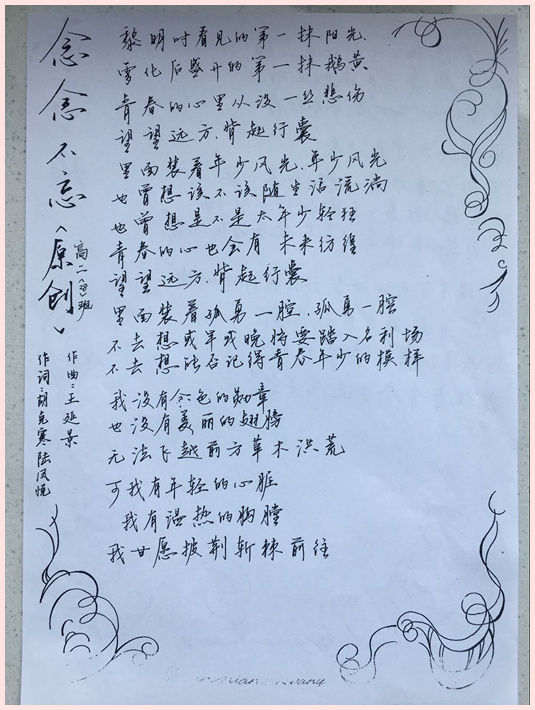 念念不忘《原创》
高二(8)班
作曲：王延景
作词：胡克寒 陆凤悦
黎明时看见的第一抹阳光，
雪化后盛开的第一抹鹅黄
青春的心里从没一丝悲伤
望望远方，背起行囊
里面装着年少风光，年少风光
也曾想该不该随生活流淌
也曾想是不是太年少轻狂
青春的心也会有未来彷徨
望望远方，背起行囊
里面装着孤勇一腔，孤勇一腔
不去想或早或晚将要踏入名利场
不去想能否记得青春年少的模样
我没有金色的勋章
也没有美丽的翅膀
无法飞越前方草木洪荒
可我有年轻的心脏
我有温热的胸膛
我甘愿披荆斩棘前往